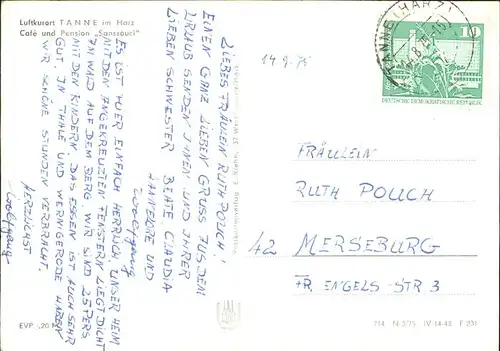 Luftkurort TANNE im Harz
Café und Pension „Sanssouci"
LIEBES FRÄULEIN RUTH POUCH!
EINEN GANZ LIEBEN GRUSS AUS DEM
URLAUB SENDEN IHNEN UND IHRER
LIEBEN SCHWESTER BEATE CLAUDIA
HANNELORE UND
Wolfgang
ES IST HIER EINFACH HERRLICH UNSER HEIM
MIT DEN ANGEKREUZTEN FENSTERN LIEGT DICHT
IN WALD AUF DEM BERG WIR SIND 25 PERS
MIT DEN KINDERN. DAS ESSEN IST AUCH SEHR
GUT. IN THALE UND WERNIGERODE HABEN
WIR SCHÖNE STUNDEN VERBRACHT.
HERZLICHST
Wolfgang
EVP -,20 M
14.8.75
TANNE (HARZ)
10
DEUTSCHE DEMOKRATISCHE REPUBLIK
FRÄULEIN
RUTH POUCH
42 MERSEBURG
FR. ENGELS-STR 3
714 N 3/75 IV-14-48 F 231